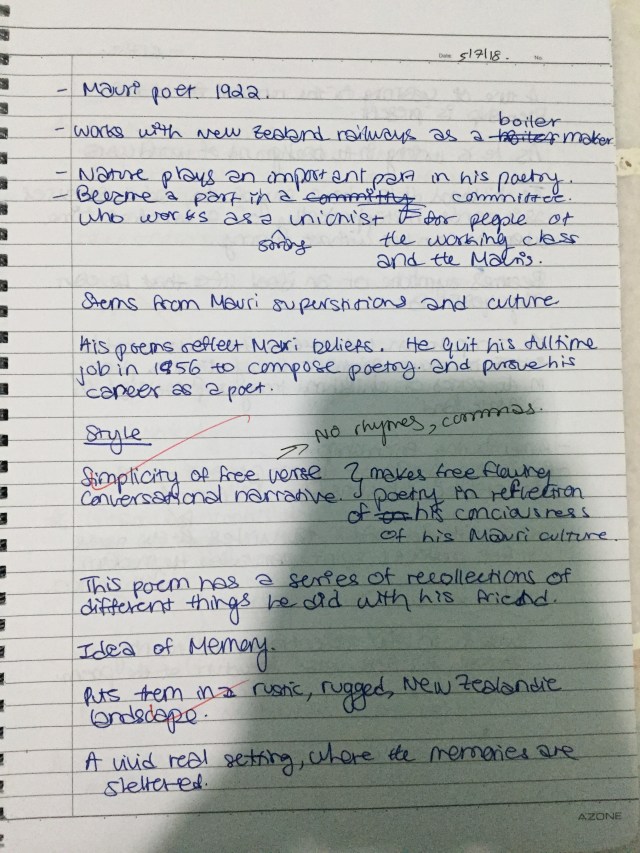 Date: 5/7/18. No:
- Mauri poet. 1922.
- Works with New Zealand railways as a boiler maker
- Nature plays an important part in his poetry.
- Became a part in a committee.
who works as a unionist for people of
strong the working class
and the Mauris.
Stems from Mauri superstitions and culture
His poems reflect Mauri beliefs. He quit his fulltime
job in 1956 to compose poetry. and pursue his
career as a poet.
Style
→ No rhymes, commas.
Simplicity of free verse } makes free flowing
conversational narrative. } poetry in reflection
of his conciousness
of his Mauri culture.
This poem has a series of recollections of
different things he did with his friend.
Idea of Memory.
Puts them in a rustic, rugged, New Zealandic
landscape.
A vivid real setting, where the memories are
sheltered.
AZONE